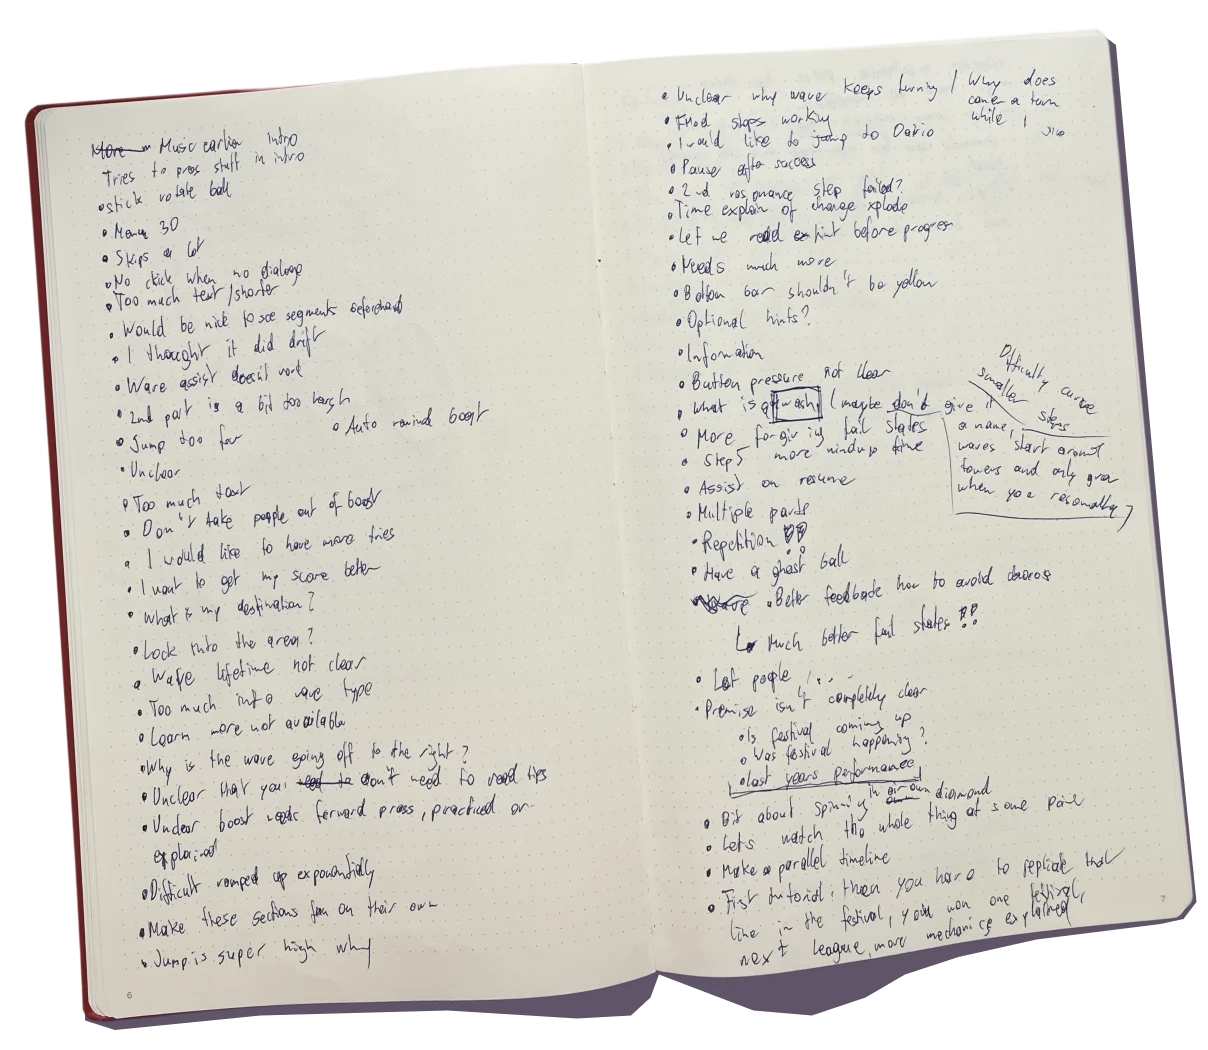 More - Music earlier intro
Tries to press stuff in intro
• stick rotate ball
• Menu 3D
• Skips a lot
• No click when no dialoge
• Too much text / shorter
• Would be nice to see segments beforehand
• I thought it did drift
• Wave assist doesn't work
• 2nd part is a bit too harsh
• Jump too far
• Auto rewind boost
• Unclear
• Too much text
• Don't take people out of boost
• I would like to have more tries
• I want to get my score better
• What is my destination?
• Lock into the area?
• Wave lifetime not clear
• Too much info wave type
• Learn more not available
• Why is the wave going off to the right?
• Unclear that you need to don't need to read tips
• Unclear boost needs forward press, practiced or
explained
• Difficult ramped up exponentially
• Make these sections fun on their own
• Jump is super high why
6
• Unclear why wave keeps turning / Why does
wave turn
while I
• FMod stops working
• I would like to jump to Dario
• Pause after success
• 2nd resonance step failed?
• Time explain of change xplode
• Let me read hint before progress
• Needs much more
• Bottom bar shouldn't be yellow
• Optional hints?
• Information
• Button pressure not clear
• What is a wash, (maybe don't give it
a name,
waves start around
towers and only grow
when you resonate,)
Difficulty curve
smaller steps
• More forgiving fail states
• Step 5 more windup time
• Assist on resume
• Multiple parts
• Repetition !!
• Have a ghost ball
Wave • Better feedback how to avoid
↳ Much better fail states !!
• Lot people !...
• Premise isn't completely clear
• Is festival coming up
• Was festival happening?
• last years performance
• Bit about spinning in air own diamond
• Lets watch the whole thing at some point
• Make a parallel timeline
• First tutorial, then you have to replicate that
live in the festival, you won one festival,
next league, more mechanics explained
7